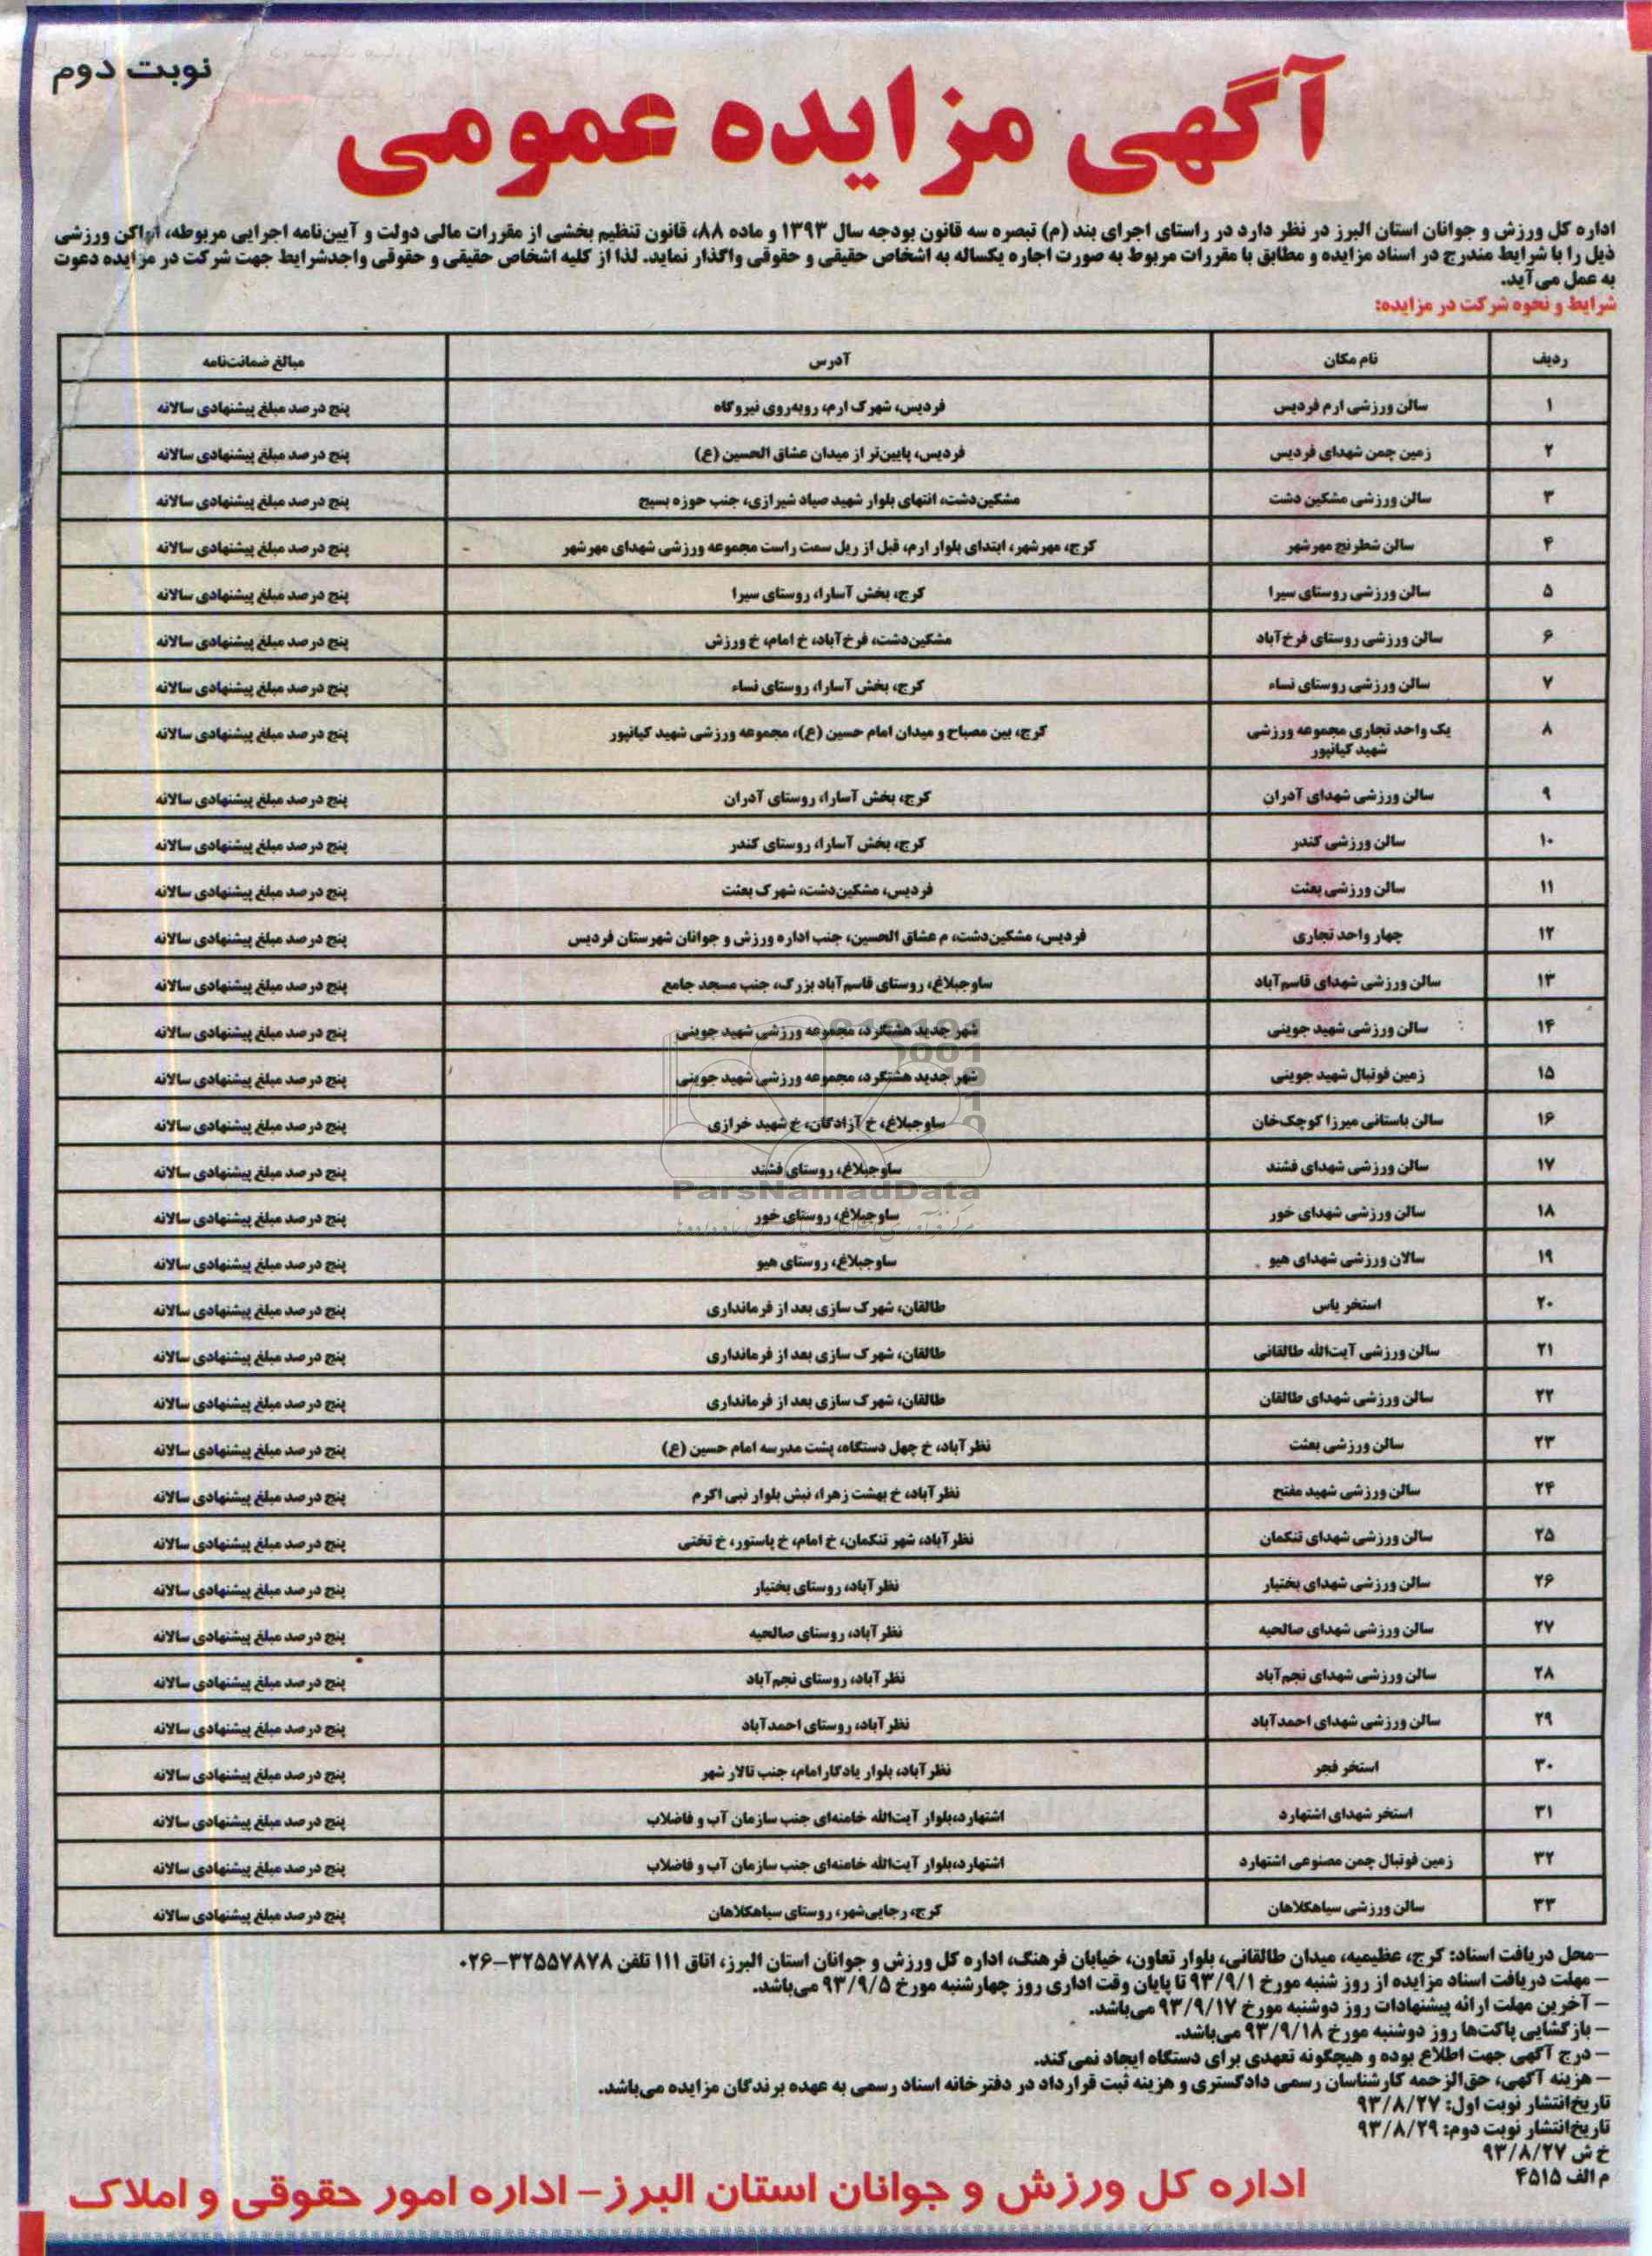 نوبت دوم
آگهی مزایده عمومی
اداره کل ورزش و جوانان استان البرز در نظر دارد در راستای اجرای بند (م) تبصره سه قانون بودجه سال ۱۳۹۳ و ماده ۸۸، قانون تنظیم بخشی از مقررات مالی دولت و آیین‌نامه اجرایی مربوطه، اماکن ورزشی
ذیل را با شرایط مندرج در اسناد مزایده و مطابق با مقررات مربوط به صورت اجاره یکساله به اشخاص حقیقی و حقوقی واگذار نماید. لذا از کلیه اشخاص حقیقی و حقوقی واجدشرایط جهت شرکت در مزایده دعوت
به عمل می‌آید.
شرایط و نحوه شرکت در مزایده:
ردیف نام مکان آدرس مبالغ ضمانت‌نامه
۱ سالن ورزشی ارم فردیس فردیس، شهرک ارم، روبه‌روی نیروگاه پنج درصد مبلغ پیشنهادی سالانه
۲ زمین چمن شهدای فردیس فردیس، پایین‌تر از میدان عشاق الحسین (ع) پنج درصد مبلغ پیشنهادی سالانه
۳ سالن ورزشی مشکین دشت مشکین‌دشت، انتهای بلوار شهید صیاد شیرازی، جنب حوزه بسیج پنج درصد مبلغ پیشنهادی سالانه
۴ سالن شطرنج مهرشهر کرج، مهرشهر، ابتدای بلوار ارم، قبل از ریل سمت راست مجموعه ورزشی شهدای مهرشهر پنج درصد مبلغ پیشنهادی سالانه
۵ سالن ورزشی روستای سیرا کرج، بخش آسارا، روستای سیرا پنج درصد مبلغ پیشنهادی سالانه
۶ سالن ورزشی روستای فرخ‌آباد مشکین‌دشت، فرخ‌آباد، خ امام، خ ورزش پنج درصد مبلغ پیشنهادی سالانه
۷ سالن ورزشی روستای نساء کرج، بخش آسارا، روستای نساء پنج درصد مبلغ پیشنهادی سالانه
۸ یک واحد تجاری مجموعه ورزشی شهید کیانپور کرج، بین مصباح و میدان امام حسین (ع)، مجموعه ورزشی شهید کیانپور پنج درصد مبلغ پیشنهادی سالانه
۹ سالن ورزشی شهدای آدران کرج، بخش آسارا، روستای آدران پنج درصد مبلغ پیشنهادی سالانه
۱۰ سالن ورزشی کندر کرج، بخش آسارا، روستای کندر پنج درصد مبلغ پیشنهادی سالانه
۱۱ سالن ورزشی بعثت فردیس، مشکین‌دشت، شهرک بعثت پنج درصد مبلغ پیشنهادی سالانه
۱۲ چهار واحد تجاری فردیس، مشکین‌دشت، م عشاق الحسین، جنب اداره ورزش و جوانان شهرستان فردیس پنج درصد مبلغ پیشنهادی سالانه
۱۳ سالن ورزشی شهدای قاسم‌آباد ساوجبلاغ، روستای قاسم‌آباد بزرگ، جنب مسجد جامع پنج درصد مبلغ پیشنهادی سالانه
۱۴ سالن ورزشی شهید جوینی شهر جدید هشتگرد، مجموعه ورزشی شهید جوینی پنج درصد مبلغ پیشنهادی سالانه
۱۵ زمین فوتبال شهید جوینی شهر جدید هشتگرد، مجموعه ورزشی شهید جوینی پنج درصد مبلغ پیشنهادی سالانه
۱۶ سالن باستانی میرزا کوچک‌خان ساوجبلاغ، خ آزادگان، خ شهید خرازی پنج درصد مبلغ پیشنهادی سالانه
۱۷ سالن ورزشی شهدای فشند ساوجبلاغ، روستای فشند پنج درصد مبلغ پیشنهادی سالانه
ParsNamadData
۱۸ سالن ورزشی شهدای خور ساوجبلاغ، روستای خور پنج درصد مبلغ پیشنهادی سالانه
۱۹ سالان ورزشی شهدای هیو ساوجبلاغ، روستای هیو پنج درصد مبلغ پیشنهادی سالانه
۲۰ استخر یاس طالقان، شهرک سازی بعد از فرمانداری پنج درصد مبلغ پیشنهادی سالانه
۲۱ سالن ورزشی آیت‌الله طالقانی طالقان، شهرک سازی بعد از فرمانداری پنج درصد مبلغ پیشنهادی سالانه
۲۲ سالن ورزشی شهدای طالقان طالقان، شهرک سازی بعد از فرمانداری پنج درصد مبلغ پیشنهادی سالانه
۲۳ سالن ورزشی بعثت نظرآباد، خ چهل دستگاه، پشت مدرسه امام حسین (ع) پنج درصد مبلغ پیشنهادی سالانه
۲۴ سالن ورزشی شهید مفتح نظرآباد، خ بهشت زهرا، نبش بلوار نبی اکرم پنج درصد مبلغ پیشنهادی سالانه
۲۵ سالن ورزشی شهدای تنکمان نظرآباد، شهر تنکمان، خ امام، خ پاستور، خ تختی پنج درصد مبلغ پیشنهادی سالانه
۲۶ سالن ورزشی شهدای بختیار نظرآباد، روستای بختیار پنج درصد مبلغ پیشنهادی سالانه
۲۷ سالن ورزشی شهدای صالحیه نظرآباد، روستای صالحیه پنج درصد مبلغ پیشنهادی سالانه
۲۸ سالن ورزشی شهدای نجم‌آباد نظرآباد، روستای نجم‌آباد پنج درصد مبلغ پیشنهادی سالانه
۲۹ سالن ورزشی شهدای احمدآباد نظرآباد، روستای احمدآباد پنج درصد مبلغ پیشنهادی سالانه
۳۰ استخر فجر نظرآباد، بلوار یادگارامام، جنب تالار شهر پنج درصد مبلغ پیشنهادی سالانه
۳۱ استخر شهدای اشتهارد اشتهارد،بلوار آیت‌الله خامنه‌ای جنب سازمان آب و فاضلاب پنج درصد مبلغ پیشنهادی سالانه
۳۲ زمین فوتبال چمن مصنوعی اشتهارد اشتهارد،بلوار آیت‌الله خامنه‌ای جنب سازمان آب و فاضلاب پنج درصد مبلغ پیشنهادی سالانه
۳۳ سالن ورزشی سیاهکلاهان کرج، رجایی‌شهر، روستای سیاهکلاهان پنج درصد مبلغ پیشنهادی سالانه
–محل دریافت اسناد: کرج، عظیمیه، میدان طالقانی، بلوار تعاون، خیابان فرهنگ، اداره کل ورزش و جوانان استان البرز، اتاق ۱۱۱ تلفن ۳۲۵۵۷۸۷۸–۰۲۶
– مهلت دریافت اسناد مزایده از روز شنبه مورخ ۹۳/۹/۱ تا پایان وقت اداری روز چهارشنبه مورخ ۹۳/۹/۵ می‌باشد.
– آخرین مهلت ارائه پیشنهادات روز دوشنبه مورخ ۹۳/۹/۱۷ می‌باشد.
– بازگشایی پاکت‌ها روز دوشنبه مورخ ۹۳/۹/۱۸ می‌باشد.
– درج آگهی جهت اطلاع بوده و هیچگونه تعهدی برای دستگاه ایجاد نمی‌کند.
– هزینه آگهی، حق‌الزحمه کارشناسان رسمی دادگستری و هزینه ثبت قرارداد در دفترخانه اسناد رسمی به عهده برندگان مزایده می‌باشد.
تاریخ‌انتشار نوبت اول: ۹۳/۸/۲۷
تاریخ‌انتشار نوبت دوم: ۹۳/۸/۲۹
خ ش ۹۳/۸/۲۷
م الف ۴۵۱۵
اداره کل ورزش و جوانان استان البرز – اداره امور حقوقی و املاک